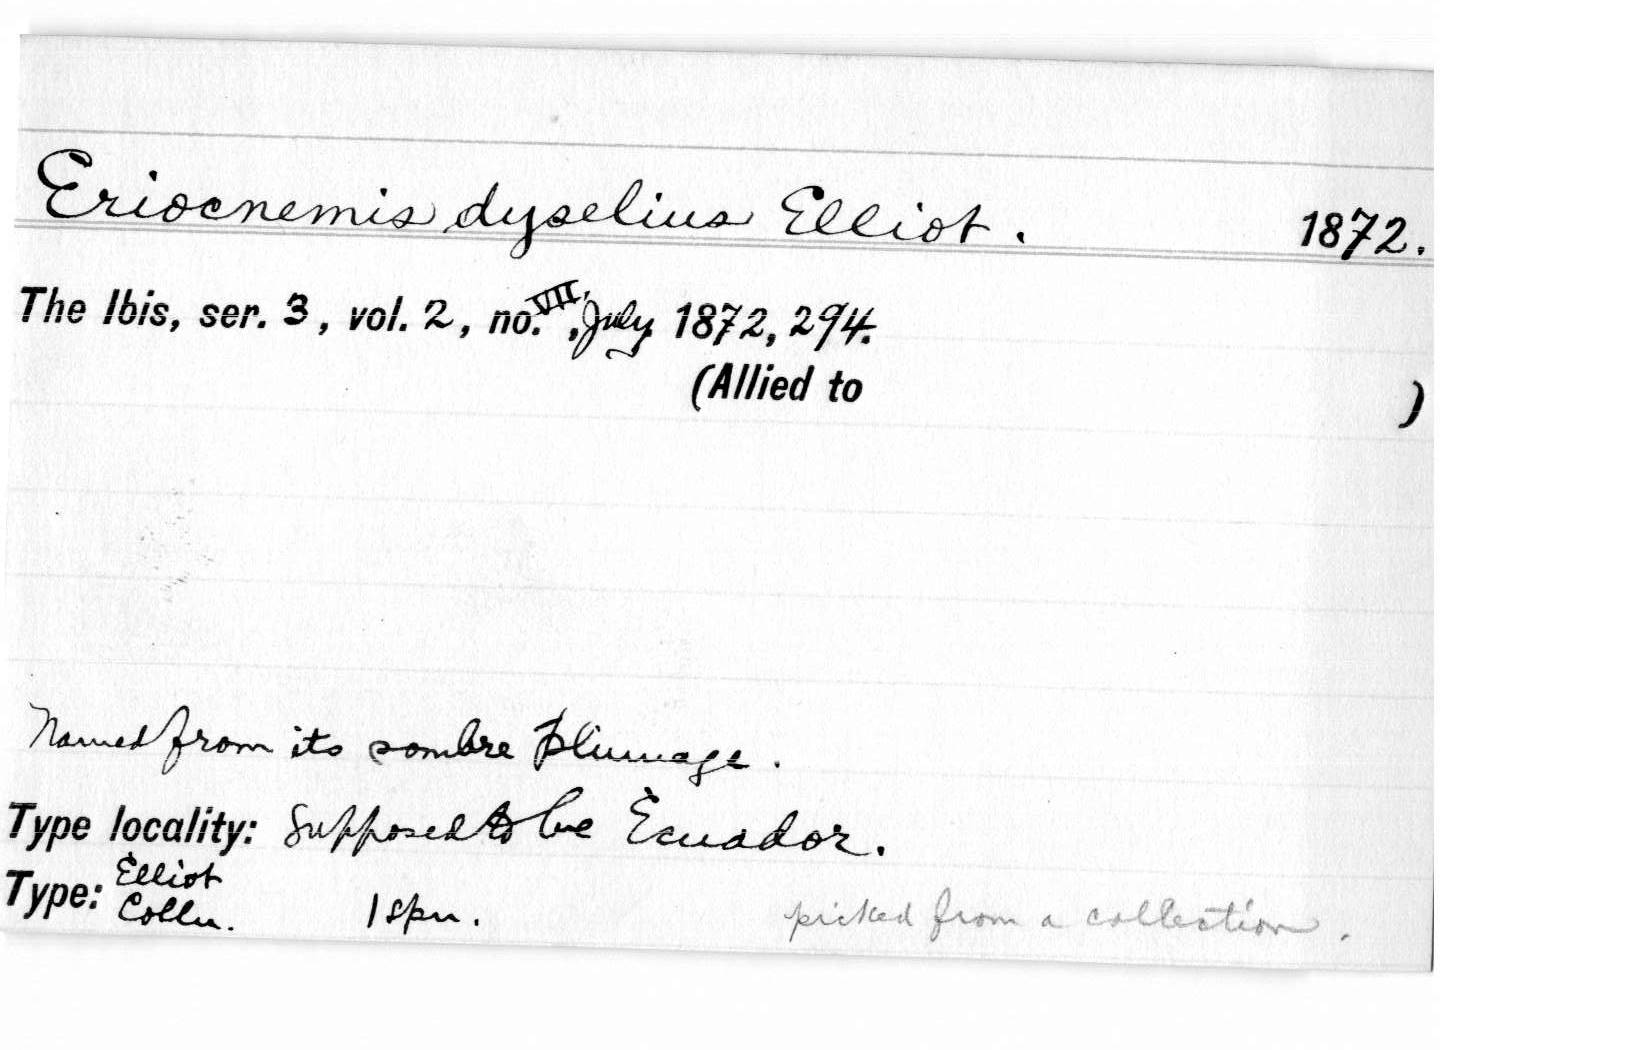 Eriocnemis dyselius Elliot. 1872.
The Ibis, ser. 3, vol. 2, no. VII, July 1872, 294.
(Allied to )
Named from its sombre plumage.
Type locality: Supposed to be Ecuador.
Type: Elliot Colln. 1 spn. picked from a collection.